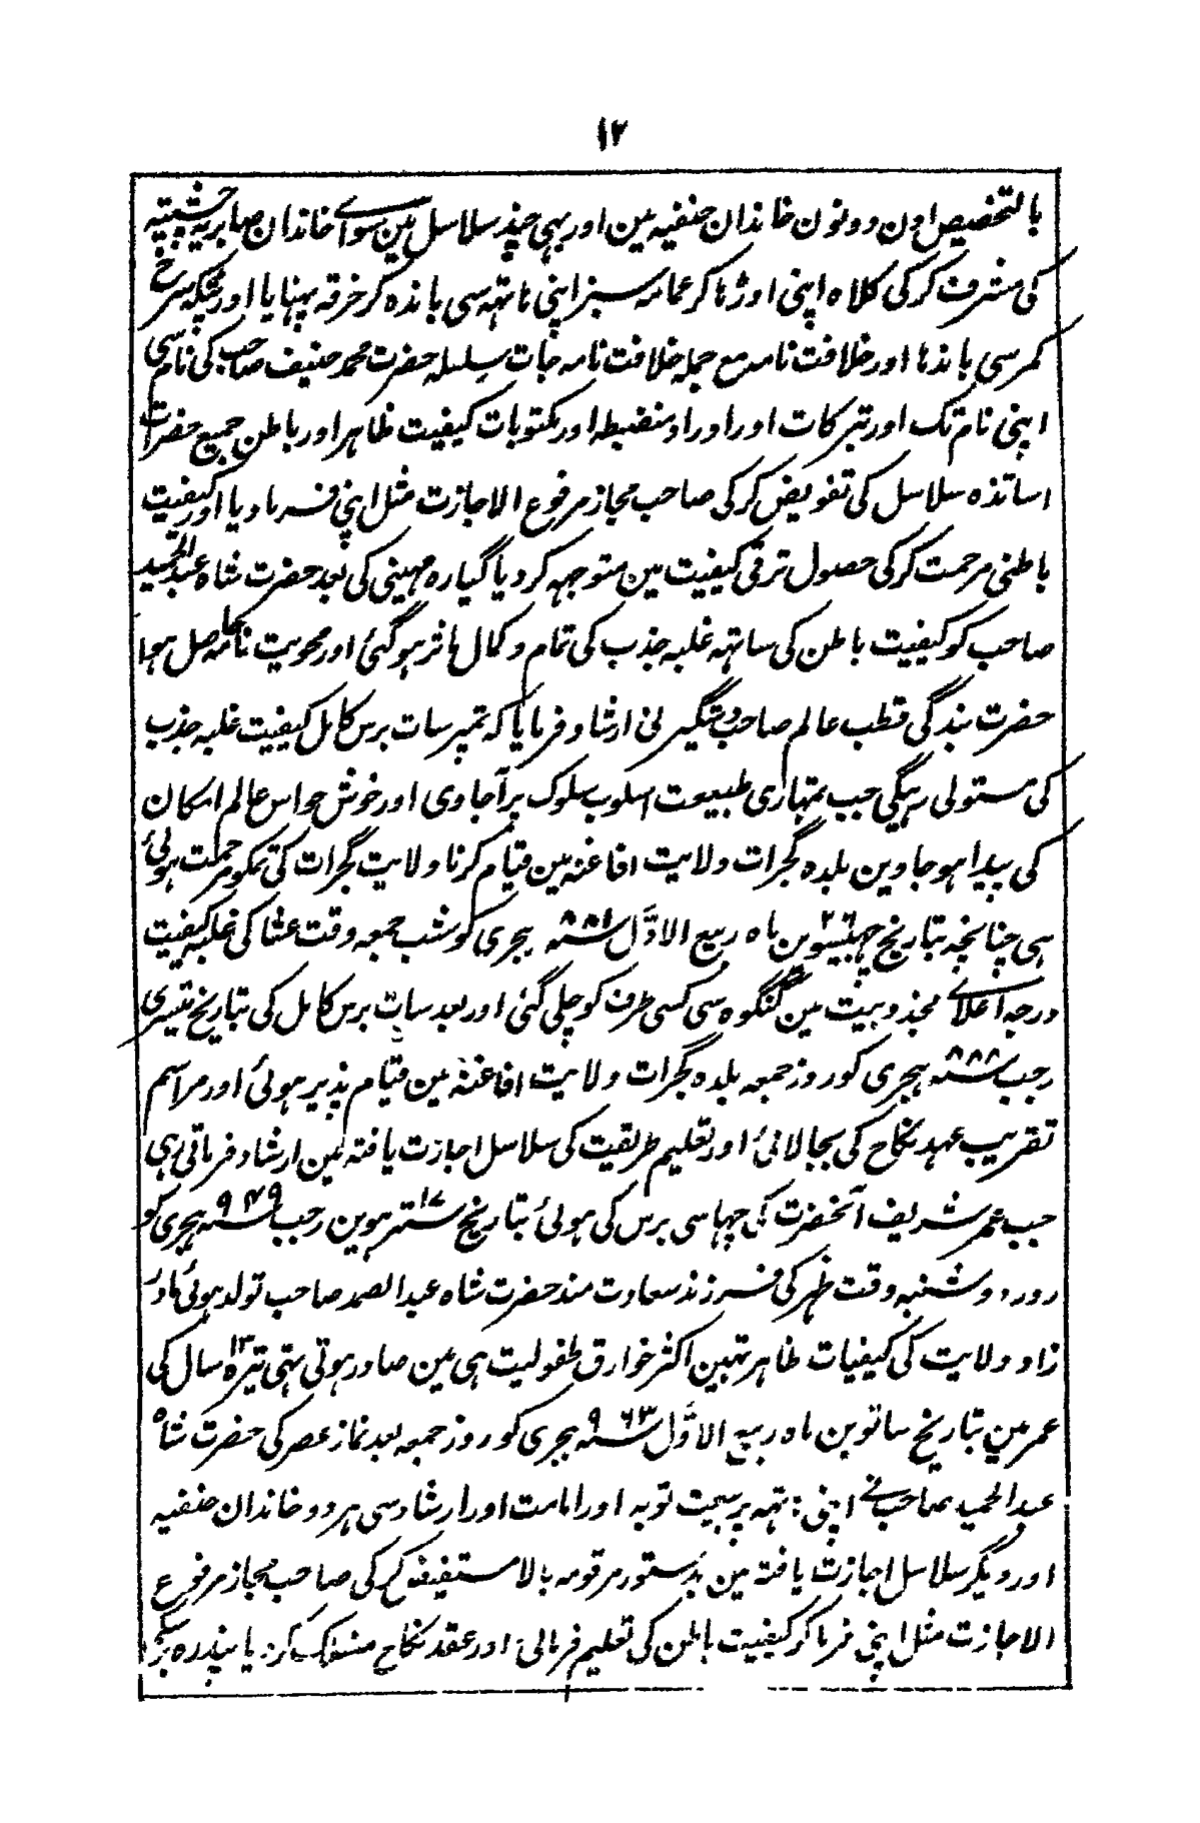 ۱۲
بالتخصیص اون دونون خاندان حنفیہ مین اور بہی چند سلاسل مین سواے خاندان صابریہ چشتیہ
کی مشرف کرکی کلاہ اپنی اوڑہا کر عمامہ سبز اپنی ہاتہہ سی باندہ کر خرقہ پہنایا اور پٹکہ سرخ
کمر سی باندہا اور خلافت نامہ مع جملہ خلافت نامہ جات سلسلہ حضرت محمد حنیف صاحب کی نام سی
اپنی نام تک اور تبرکات اور اوراد منضبطہ اور مکتوبات کیفیت ظاہر اور باطن جمیع حضرات
اساتذہ سلاسل کی تفویض کرکی صاحب مجاز مرفوع الاجازت مثل اپنی فرمادیا اور کیفیت
باطنی مرحمت کرکی حصول ترقی کیفیت مین متوجہہ کردیا گیارہ مہینی کی بعد حضرت شاہ عبدالحمید
صاحب کو کیفیت باطن کی ساتہہ غلبہ جذب کی تمام و کمال ماثر ہوگئی اور محویت تامہ حاصل ہوا
حضرت بندگی قطب عالم صاحب دستگیر نی ارشاد فرمایا کہ تمپر سات برس کامل کیفیت غلبہ جذب
کی مستولی رہیگی جب تمہاری طبیعت اسلوب سلوک پر آجاوی اور خوش حواس عالم امکان
کی پیدا ہو جاوین بلدہ گجرات ولایت افاغنہ مین قیام کرنا ولایت گجرات کی تمکو مرحمت ہوئی
ہی چنانچہ بتاریخ چہبیسوین ۲۶ ماہ ربیع الاوّل سنہ ۸۸۱ ہجری کو شب جمعہ وقت عشا کی غلبہ کیفیت
درجہ اعلاے مجذوبیت مین گنگوہ سی کسی طرف کو چلی گئی اور بعد سات برس کامل کی بتاریخ تیسری
رجب سنہ ۸۸۸ ہجری کو روز جمعہ بلدہ گجرات ولایت افاغنہ مین قیام پذیر ہوئی اور مراسم
تقریب عہد نکاح کی بجالائی اور تعلیم طریقیت کی سلاسل اجازت یافتہ مین ارشاد فرماتی رہی
جب عمر شریف آنحضرت کی چہاسی برس کی ہوئی بتاریخ سترہوین ۱۷ رجب سنہ ۹۴۹ ہجری کو
روز دوشنبہ وقت ظہر کی فرزند سعادت مند حضرت شاہ عبدالصمد صاحب تولد ہوئی مادر
زاد ولایت کی کیفیات ظاہر تہین اکثر خوارق طفولیت ہی مین صادر ہوتی تہی تیرہ ۱۳ سال کی
عمر مین بتاریخ ساتوین ماہ ربیع الاوّل سنہ ۹۶۳ ہجری کو روز جمعہ بعد نماز عصر کی حضرت شاہ
عبدالحمید صاحب نے اپنی ہاتہہ پر بیعت توبہ اور امامت اور ارشاد سی ہر دو خاندان حنفیہ
اور دیگر سلاسل اجازت یافتہ مین بدستور مرقومہ بالا مستفیض کرکی صاحب مجاز مرفوع
الاجازت مثل اپنی فرما کر کیفیت باطن کی تعلیم فرمائی اور عقد نکاح منسلک کردیا پندرہ